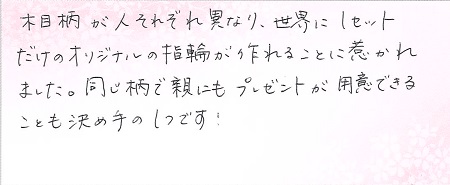 木目柄が人それぞれ異なり、世界に1セット
だけのオリジナルの指輪が作れることに惹かれ
ました。同じ柄で親にもプレゼントが用意できる
ことも決め手の1つです!